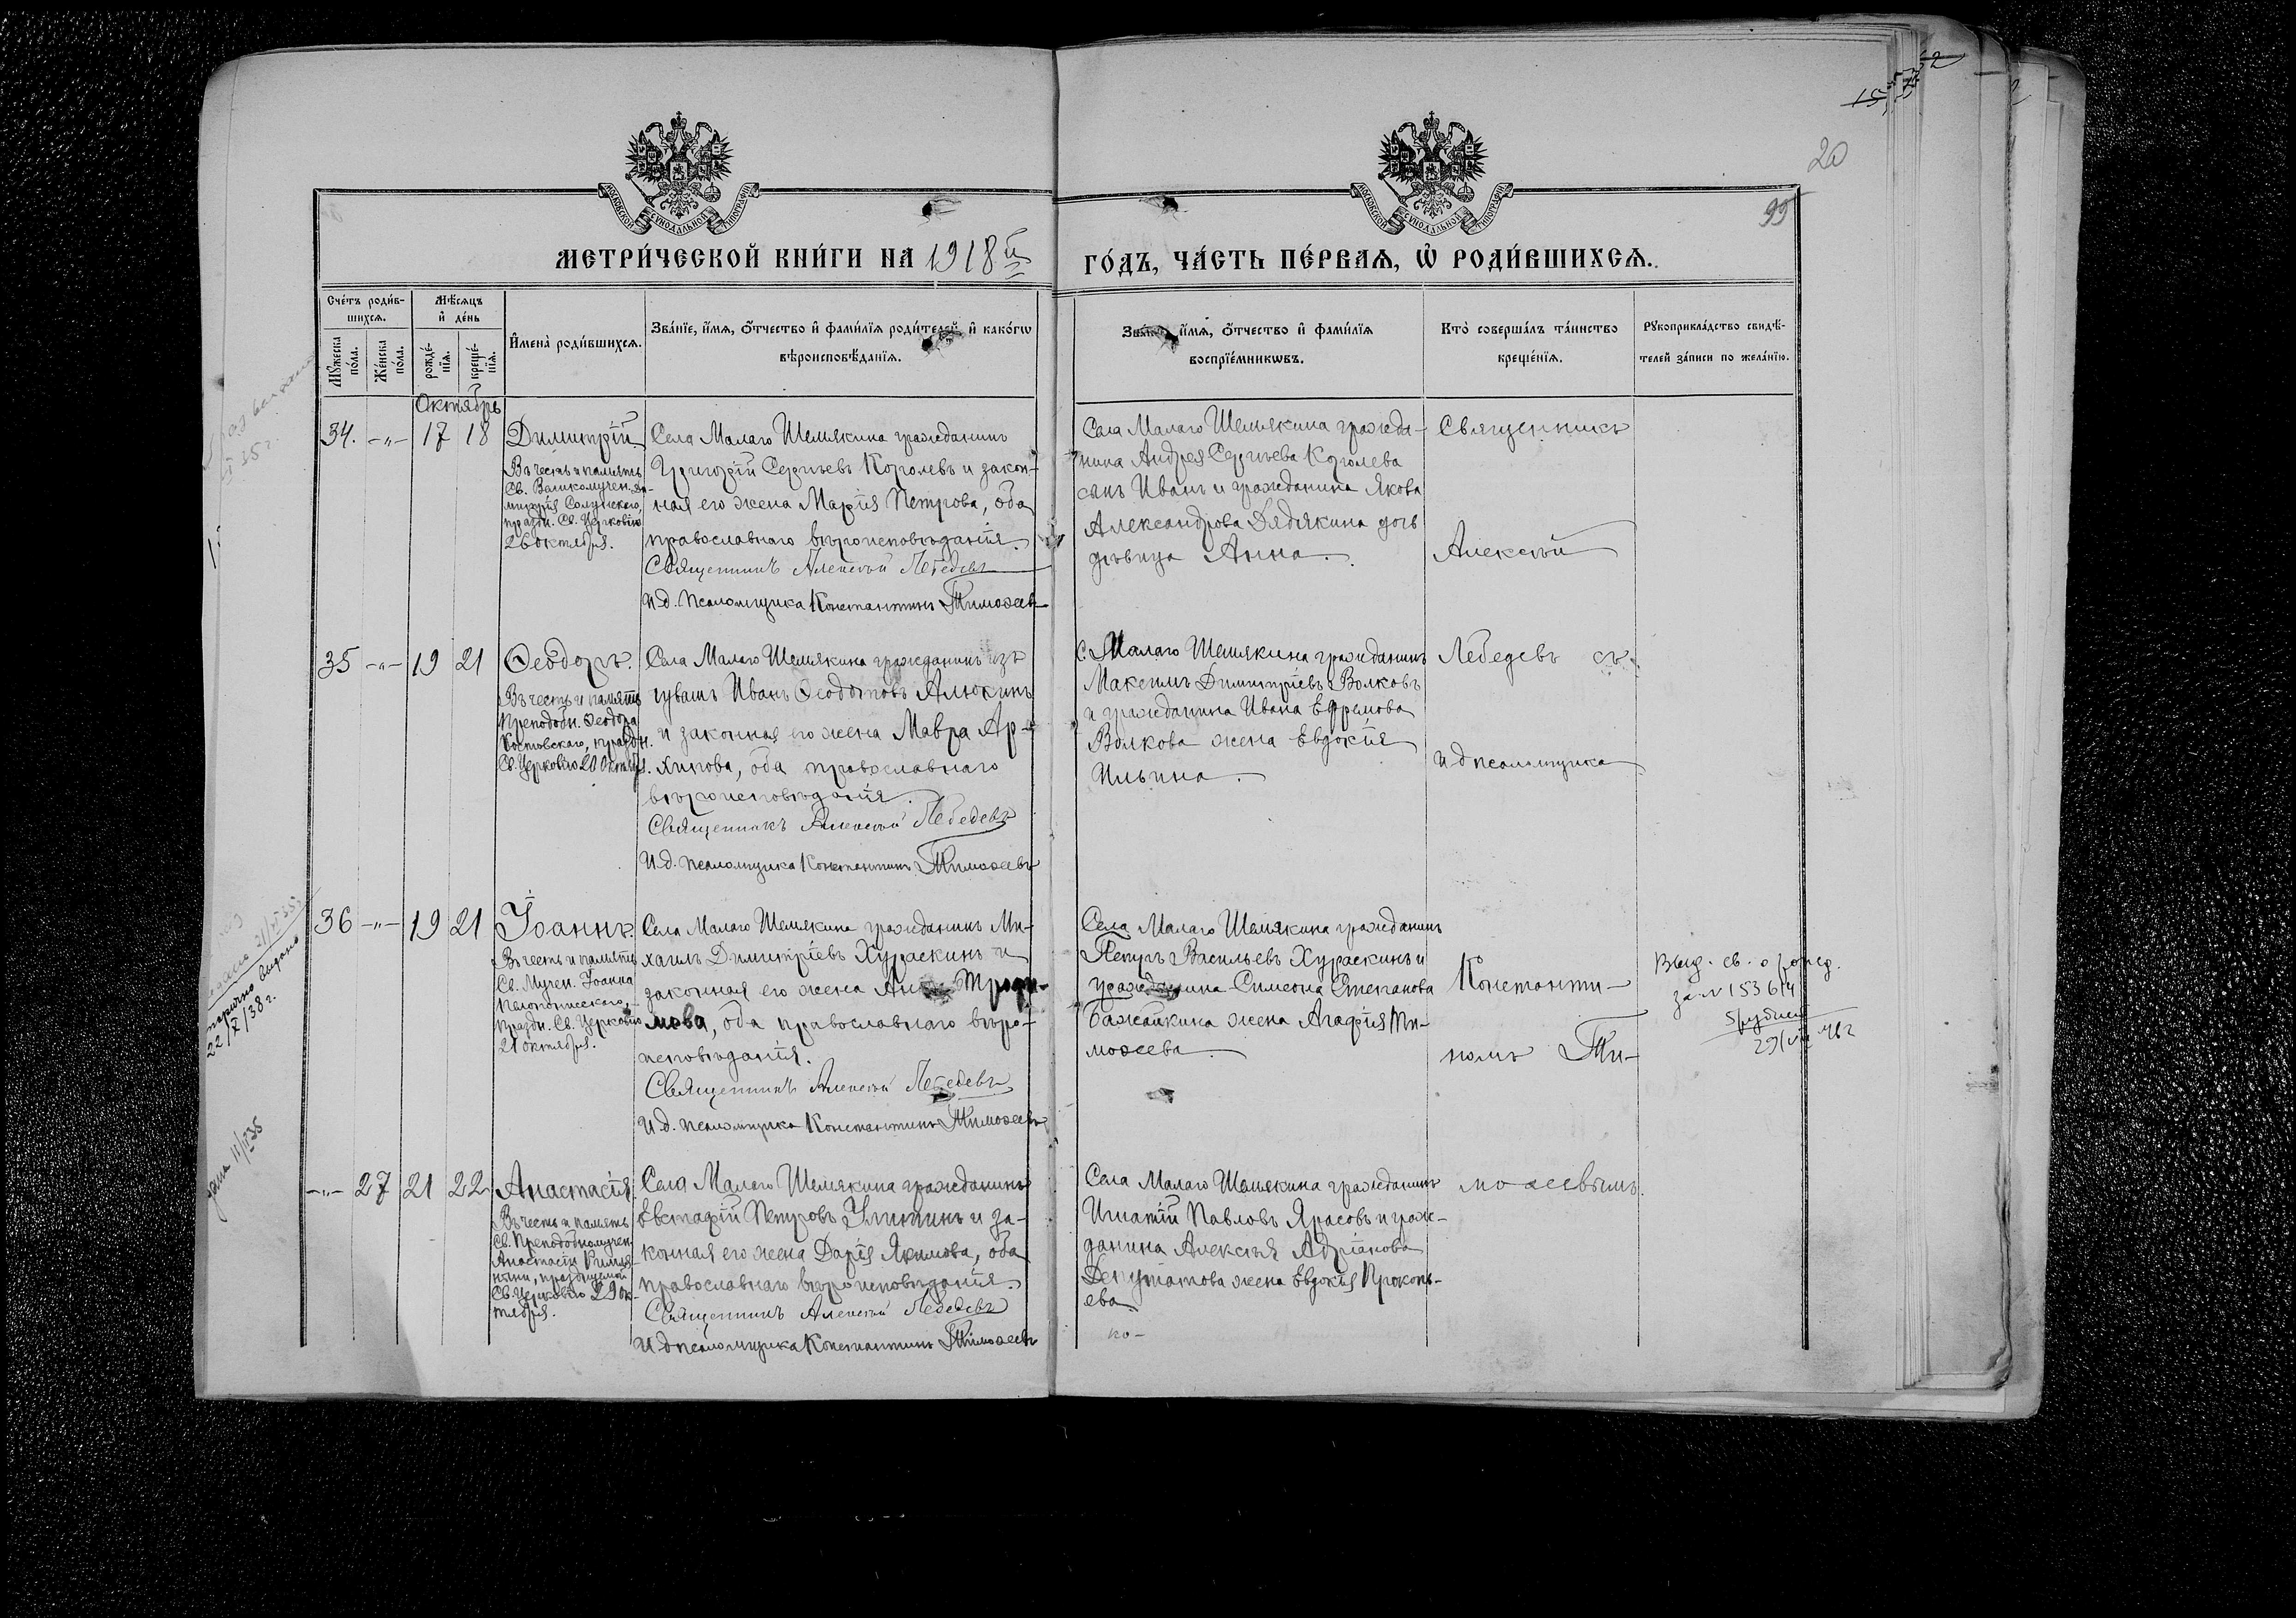 20
99
МЕТРИ́ЧЕСКОЙ КНИ́ГИ НА 1918й
ГО́ДЪ, ЧА́СТЬ ПЕ́РВАЯ, Ѽ РОДИ́ВШИХСЯ.
Сче́тъ роди́в-
шихся.
Мѣсяцъ
и҆ де́нь
Мꙋ́жеска
по́ла.
Же́нска
по́ла.
рожде́-
нїя.
креще́-
нїя.
И҆мена̀ роди́вшихся.
Зва́нїе, и҆́мя, ѻ҆́тчество и҆ фами́лїя роди́телей, и҆ како́гѡ
вѣроисповѣ́данїя.
и҆́мя, ѻ҆́тчество и҆ фами́лїя
воспрїе́мникѡвъ.
Кто̀ соверша́лъ та́инство
креще́нїя.
Рꙋкоприкла́дство свидѣ́-
телей за́писи по жела́нїю.
Октябрь
34. -„- 17 18 Димитрій
Въ честь и память
Св. Великомучен. Ди-
митрія Солунскаго,
праздн. Св. Церковію
26 октября.
Села Малаго Шемякина гражданинъ
Григорій Сергѣевъ Королевъ и закон-
ная его жена Марія Петрова, оба
православнаго вѣроисповѣданія.
Священникъ Алексѣй Лебедевъ
И.д. псаломщика Константинъ Тимоѳеевъ
Села Малаго Шемякина гражда-
нина Андрея Сергѣева Королева
сынъ Иванъ и гражданина Якова
Александрова Дядякина дочь
дѣвица Анна.
Священникъ
Алексѣй
35 -„- 19 21 Ѳеодоръ.
Въ честь и память
Преподобн. Ѳеодора
Ростовскаго, праздн.
Св. Церковію 20 Октяб.
Села Малаго Шемякина гражданинъ изъ
чувашъ Иванъ Ѳеодотовъ Алюкинъ
и законная его жена Мавра Ар-
хипова, оба православнаго
вѣроисповѣданія.
Священникъ Алексѣй Лебедевъ
И.д. псаломщика Константинъ Тимоѳеевъ
С. Малаго Шемякина гражданинъ
Максимъ Димитріевъ Волковъ
и гражданина Ивана Ефремова
Волкова жена Евдокія
Ильина.
Лебедевъ съ
И д псаломщика
36 -„- 19 21 Іоаннъ.
Въ честь и память
Св. Мучен. Іоанна
праздн. Св. Церковію
21 октября.
Села Малаго Шемякина гражданинъ Ми-
хаилъ Димитріевъ Хураскинъ и
законная его жена Анна Трофи-
мова, оба православнаго вѣро-
исповѣданія.
Священникъ Алексѣй Лебедевъ
И.д. псаломщика Константинъ Тимоѳеевъ
Села Малаго Шемякина гражданинъ
Петръ Васильевъ Хураскинъ и
гражданина Симеона Степанова
Бажайкина жена Агафія Ти-
моѳеева.
Константи-
номъ Ти-
Выд. св. о рожд.
за N 153614
22/X/38 г.
-„- 27 21 22 Анастасія.
Въ честь и память
Св. Преподобномучен.
Анастасіи Римля-
ныни, празднуемой
Св. Церковію 29 ок-
тября.
Села Малаго Шемякина гражданинъ
Евстафій Петровъ Улитинъ и за-
конная его жена Дарія Якимова, оба
православнаго вѣроисповѣданія.
Священникъ Алексѣй Лебедевъ
И д псаломщика Константинъ Тимоѳеевъ
Села Малаго Шемякина гражданинъ
Игнатій Павловъ Ярасовъ и граж-
данина Алексѣя Адріанова
Депутатова жена Евдокія Прокопь-
ева
моѳеевымъ.